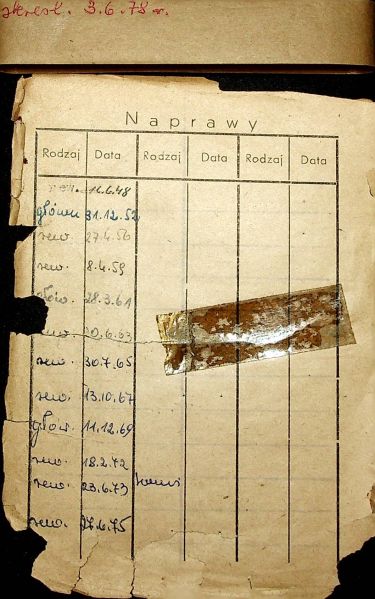 skreśl. 3.6.78 r.
Naprawy
Rodzaj Data Rodzaj Data Rodzaj Data
rew. 11.6.48
główna 31.12.52
rew. 27.4.56
rew. 8.4.59
głów. 28.3.61
rew. 20.6.63
rew. 30.7.65
rew. 13.10.67
głów. 11.12.69
rew. 18.2.72
rew. 23.6.73
rew. 27.6.75